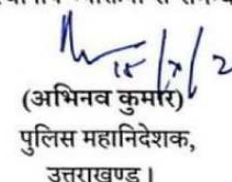 15/x/2
(अभिनव कुमार)
पुलिस महानिदेशक,
उत्तराखण्ड।